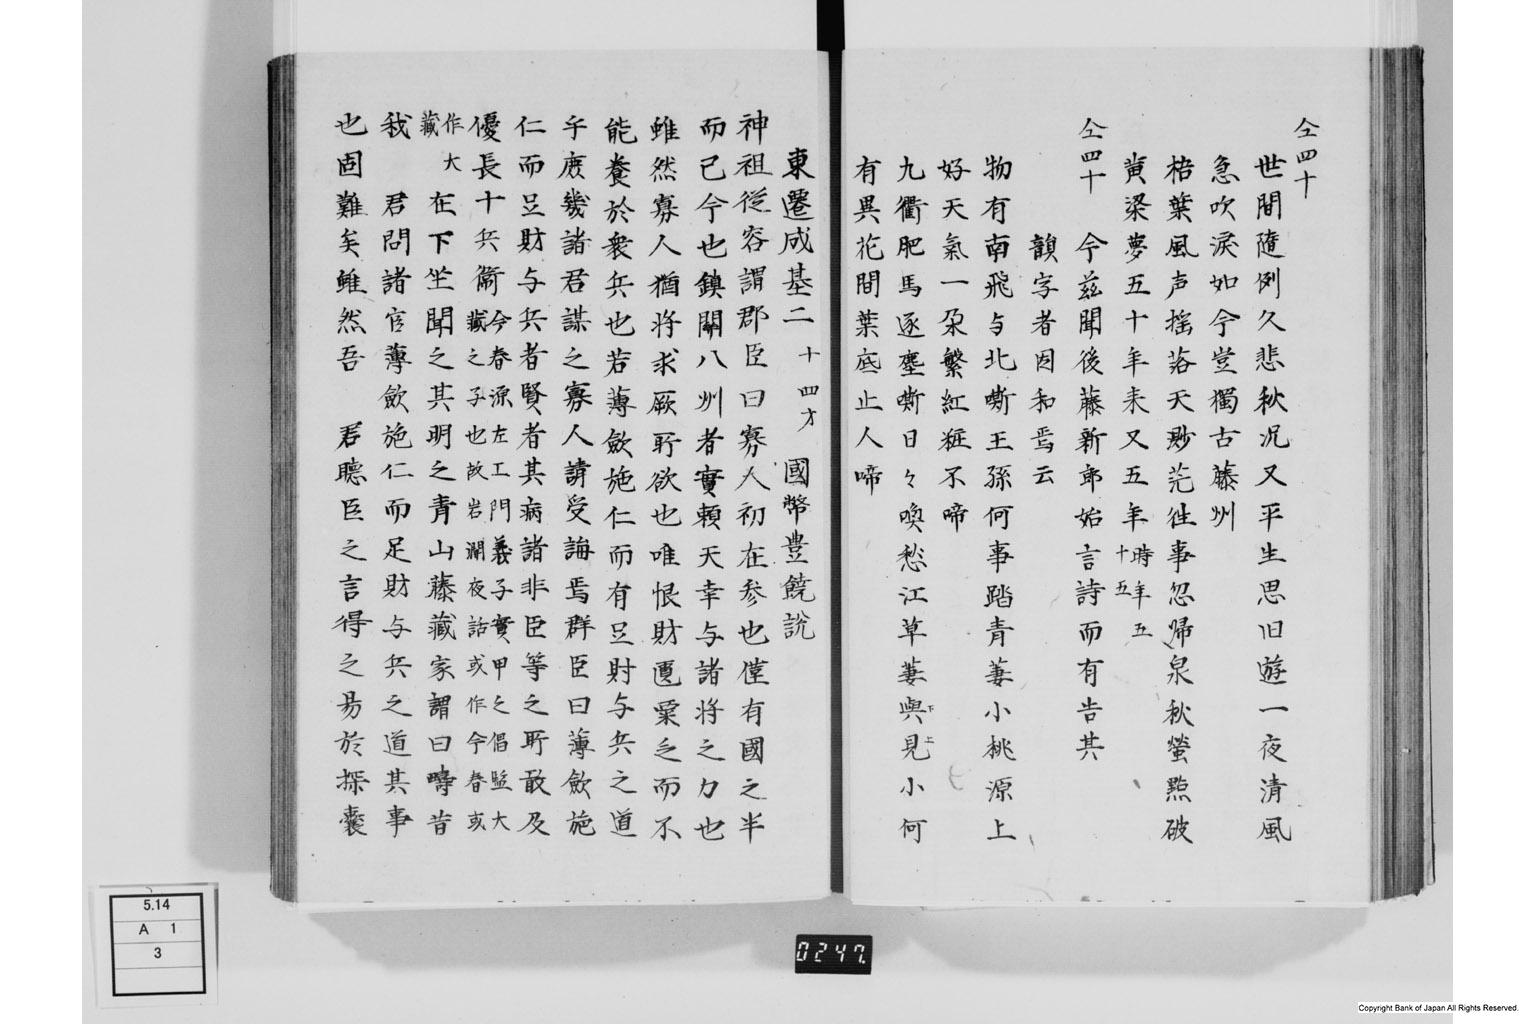 仝四十
世間隨例久悲秋况又平生思旧遊一夜清風
急吹涙如今豈獨古藤州
梧葉風声揺落天䏚茫徃事忽帰泉秋螢㸃破
黄梁夢五十年来又五年時年五十五
仝四十　今茲聞後藤新郎始言詩而有告其
韻字者因和焉云
物有南飛与北嘶王孫何事踏青萋小桃源上
好天氣一朶繁紅粧不啼
九衢肥馬逐塵嘶日々喚愁江草萋與下見上小何
有異花間葉底止人啼
東遷成基二十四才　國幣豊饒説
神祖従容謂郡臣曰寡人初在参也僅有國之半
而已今也鎮關八州者實頼天幸与諸将之力也
雖然寡人猶将求厥所欲也唯恨財匱粟乏而不
能養於衆兵也若薄斂施仁而有足財与兵之道
乎庶幾諸君謀之寡人請受誨焉群臣曰薄斂施
仁而足財与兵者賢者其病諸非臣等之所敢及
優長十兵衛今春源左工門義子實甲之倡監大藏之子也故岩渕夜話或作今春或
作大藏　在下坐聞之其明之青山藤藏家謂曰疇昔
我　君問諸官薄斂施仁而足財与兵之道其事
也固難矣雖然吾　君聴臣之言得之易於探嚢
5.14
A 1
3
0247.
Copyright Bank of Japan All Rights Reserved.